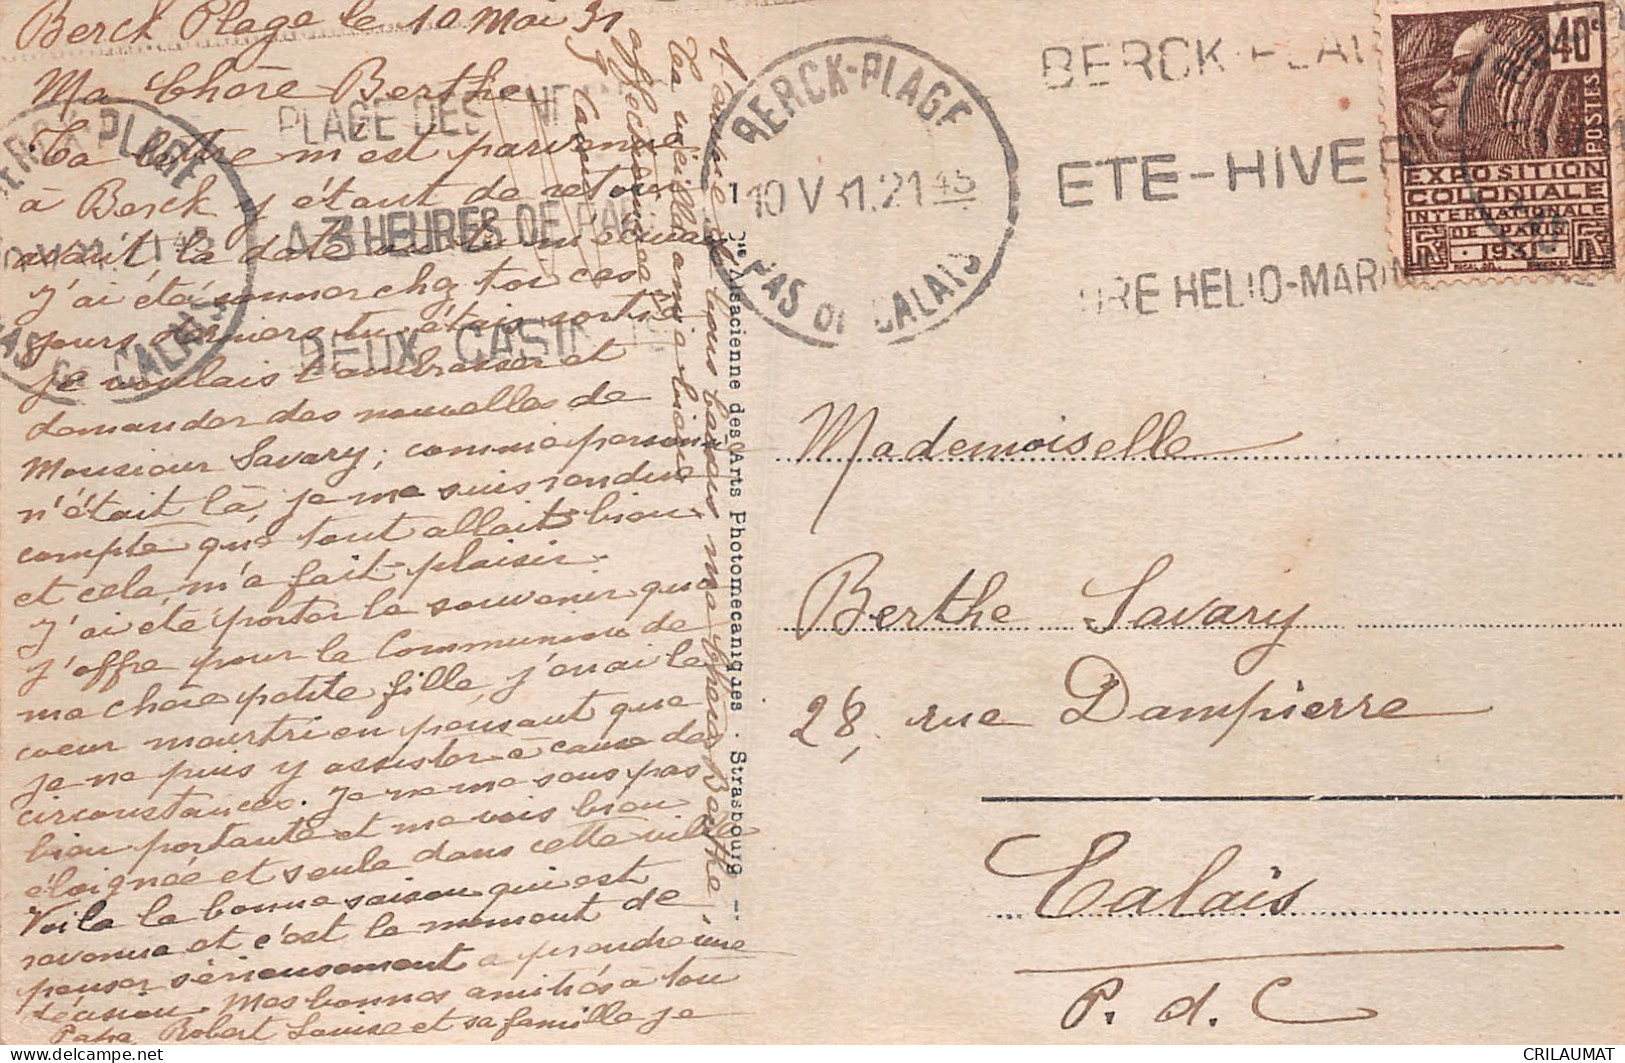 Berck Plage le 10 Mai 31
Ma Chère Berthe
Ta lettre m'est parvenue
à Berck y étant de retour
avant la date
J'ai été sonner chez toi ces
jours derniers tu étais sortie
je voulais t'embrasser et
demander des nouvelles de
Monsieur Savary, comme personne
n'était là, je me suis rendue
compte que tout allait bien
et cela m'a fait plaisir.
J'ai été porter le souvenir que
j'offre pour la Communion de
ma chère petite fille, j'en ai le
coeur meurtri en pensant que
je ne puis y assister à cause des
circonstances. Je ne me sens pas
bien portante et me vois bien
éloignée et seule dans cette ville
Voila la bonne saison qui est
revenue et c'est le moment de
penser sérieusement a prendre une
décision. Mes bonnes amitiés à ton
Papa, Robert Louise et sa famille je
t'envoie de bons baisers ma chère Berthe,
Ta vieille amie bien
affectionnée
BERCK-PLAGE
10 V 31. 21 45
PAS DE CALAIS
BERCK-PLAGE
PLAGE DES
A 3 HEURES DE PARIS
DEUX CASINOS
BERCK-PLAGE
ETE-HIVER
HELIO-MARIN
40c
POSTES
EXPOSITION
COLONIALE
INTERNATIONALE
DE PARIS
1931
RF
Cie Alsacienne des Arts Photomécaniques - Strasbourg
Mademoiselle
Berthe Savary
28, rue Dampierre
Calais
P. d. C
CRILAUMAT